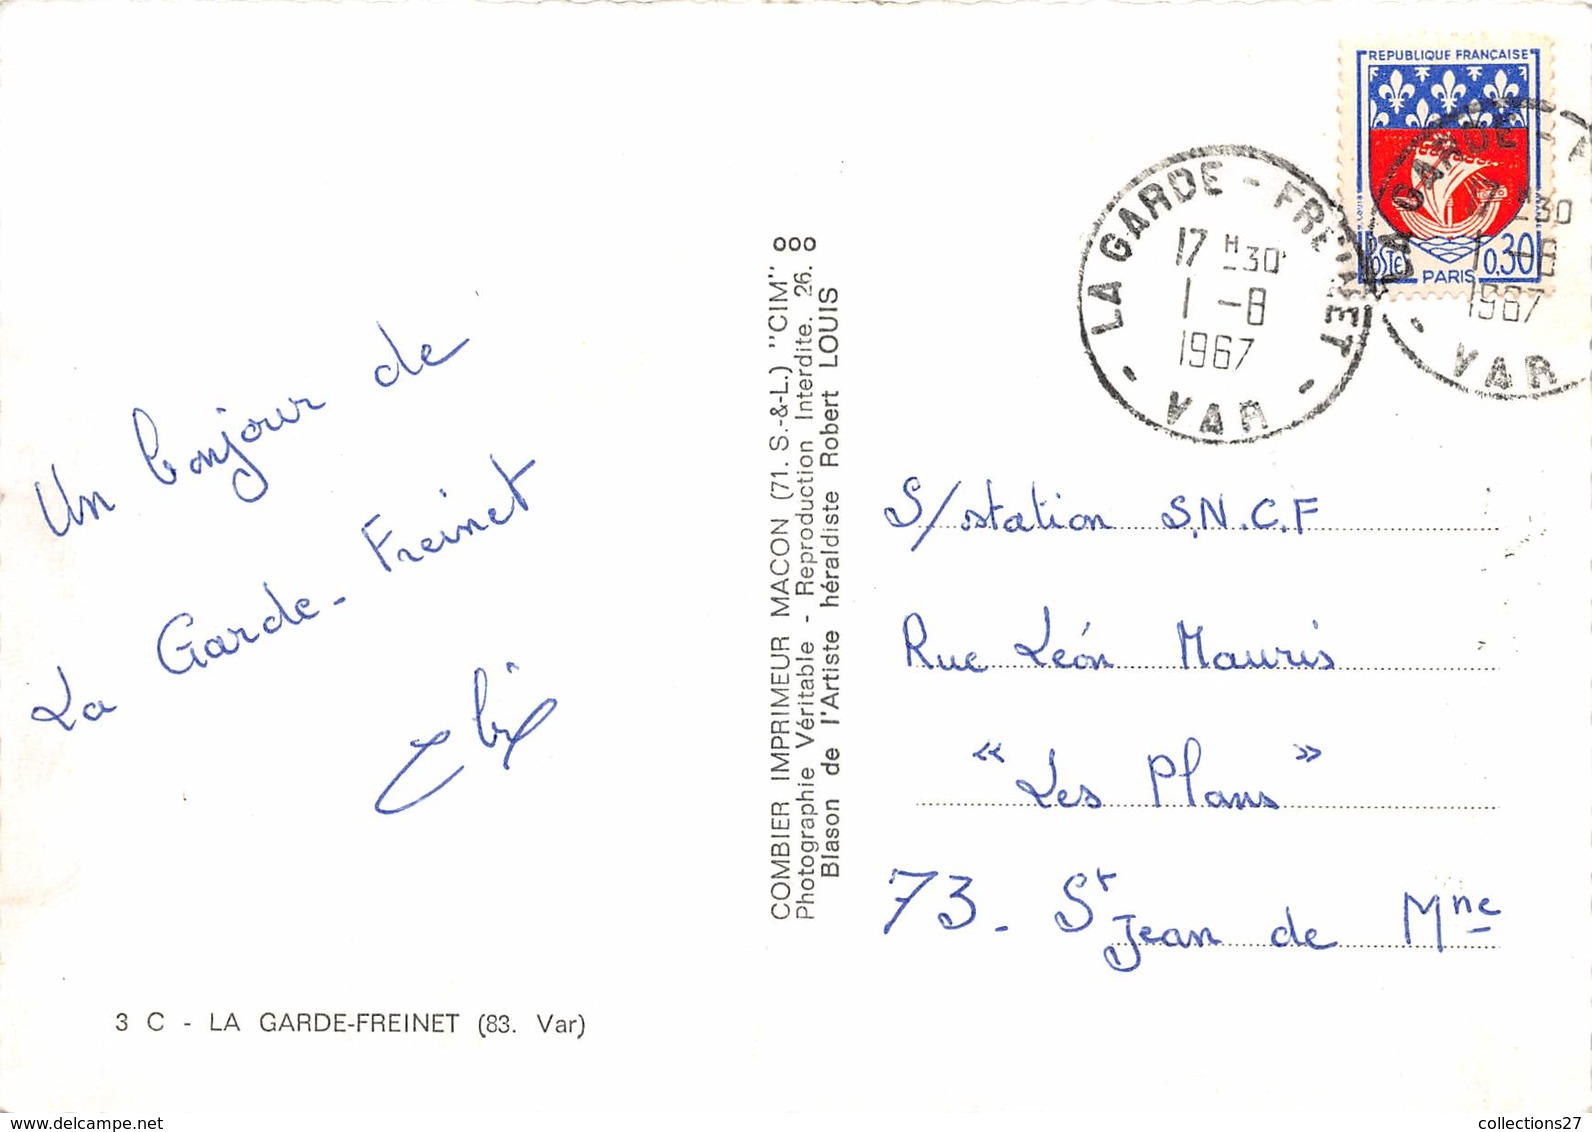 Un bonjour de
La Garde-Freinet
3 C - LA GARDE-FREINET (83. Var)
COMBIER IMPRIMEUR MACON (71. S.-&-L.) "CIM"
Photographie Véritable - Reproduction Interdite. 26. 000
Blason de l'Artiste héraldiste Robert LOUIS
REPUBLIQUE FRANÇAISE
POSTES
0,30
PARIS
LA GARDE - FREINET
17 H 30
1 -8
1967
- VAR -
LA GARDE - F
17 H 30
1 -8
1967
- VAR
S/station S.N.C.F
Rue Léon Mauris
" Les Plans "
73. St Jean de Mne
collections27